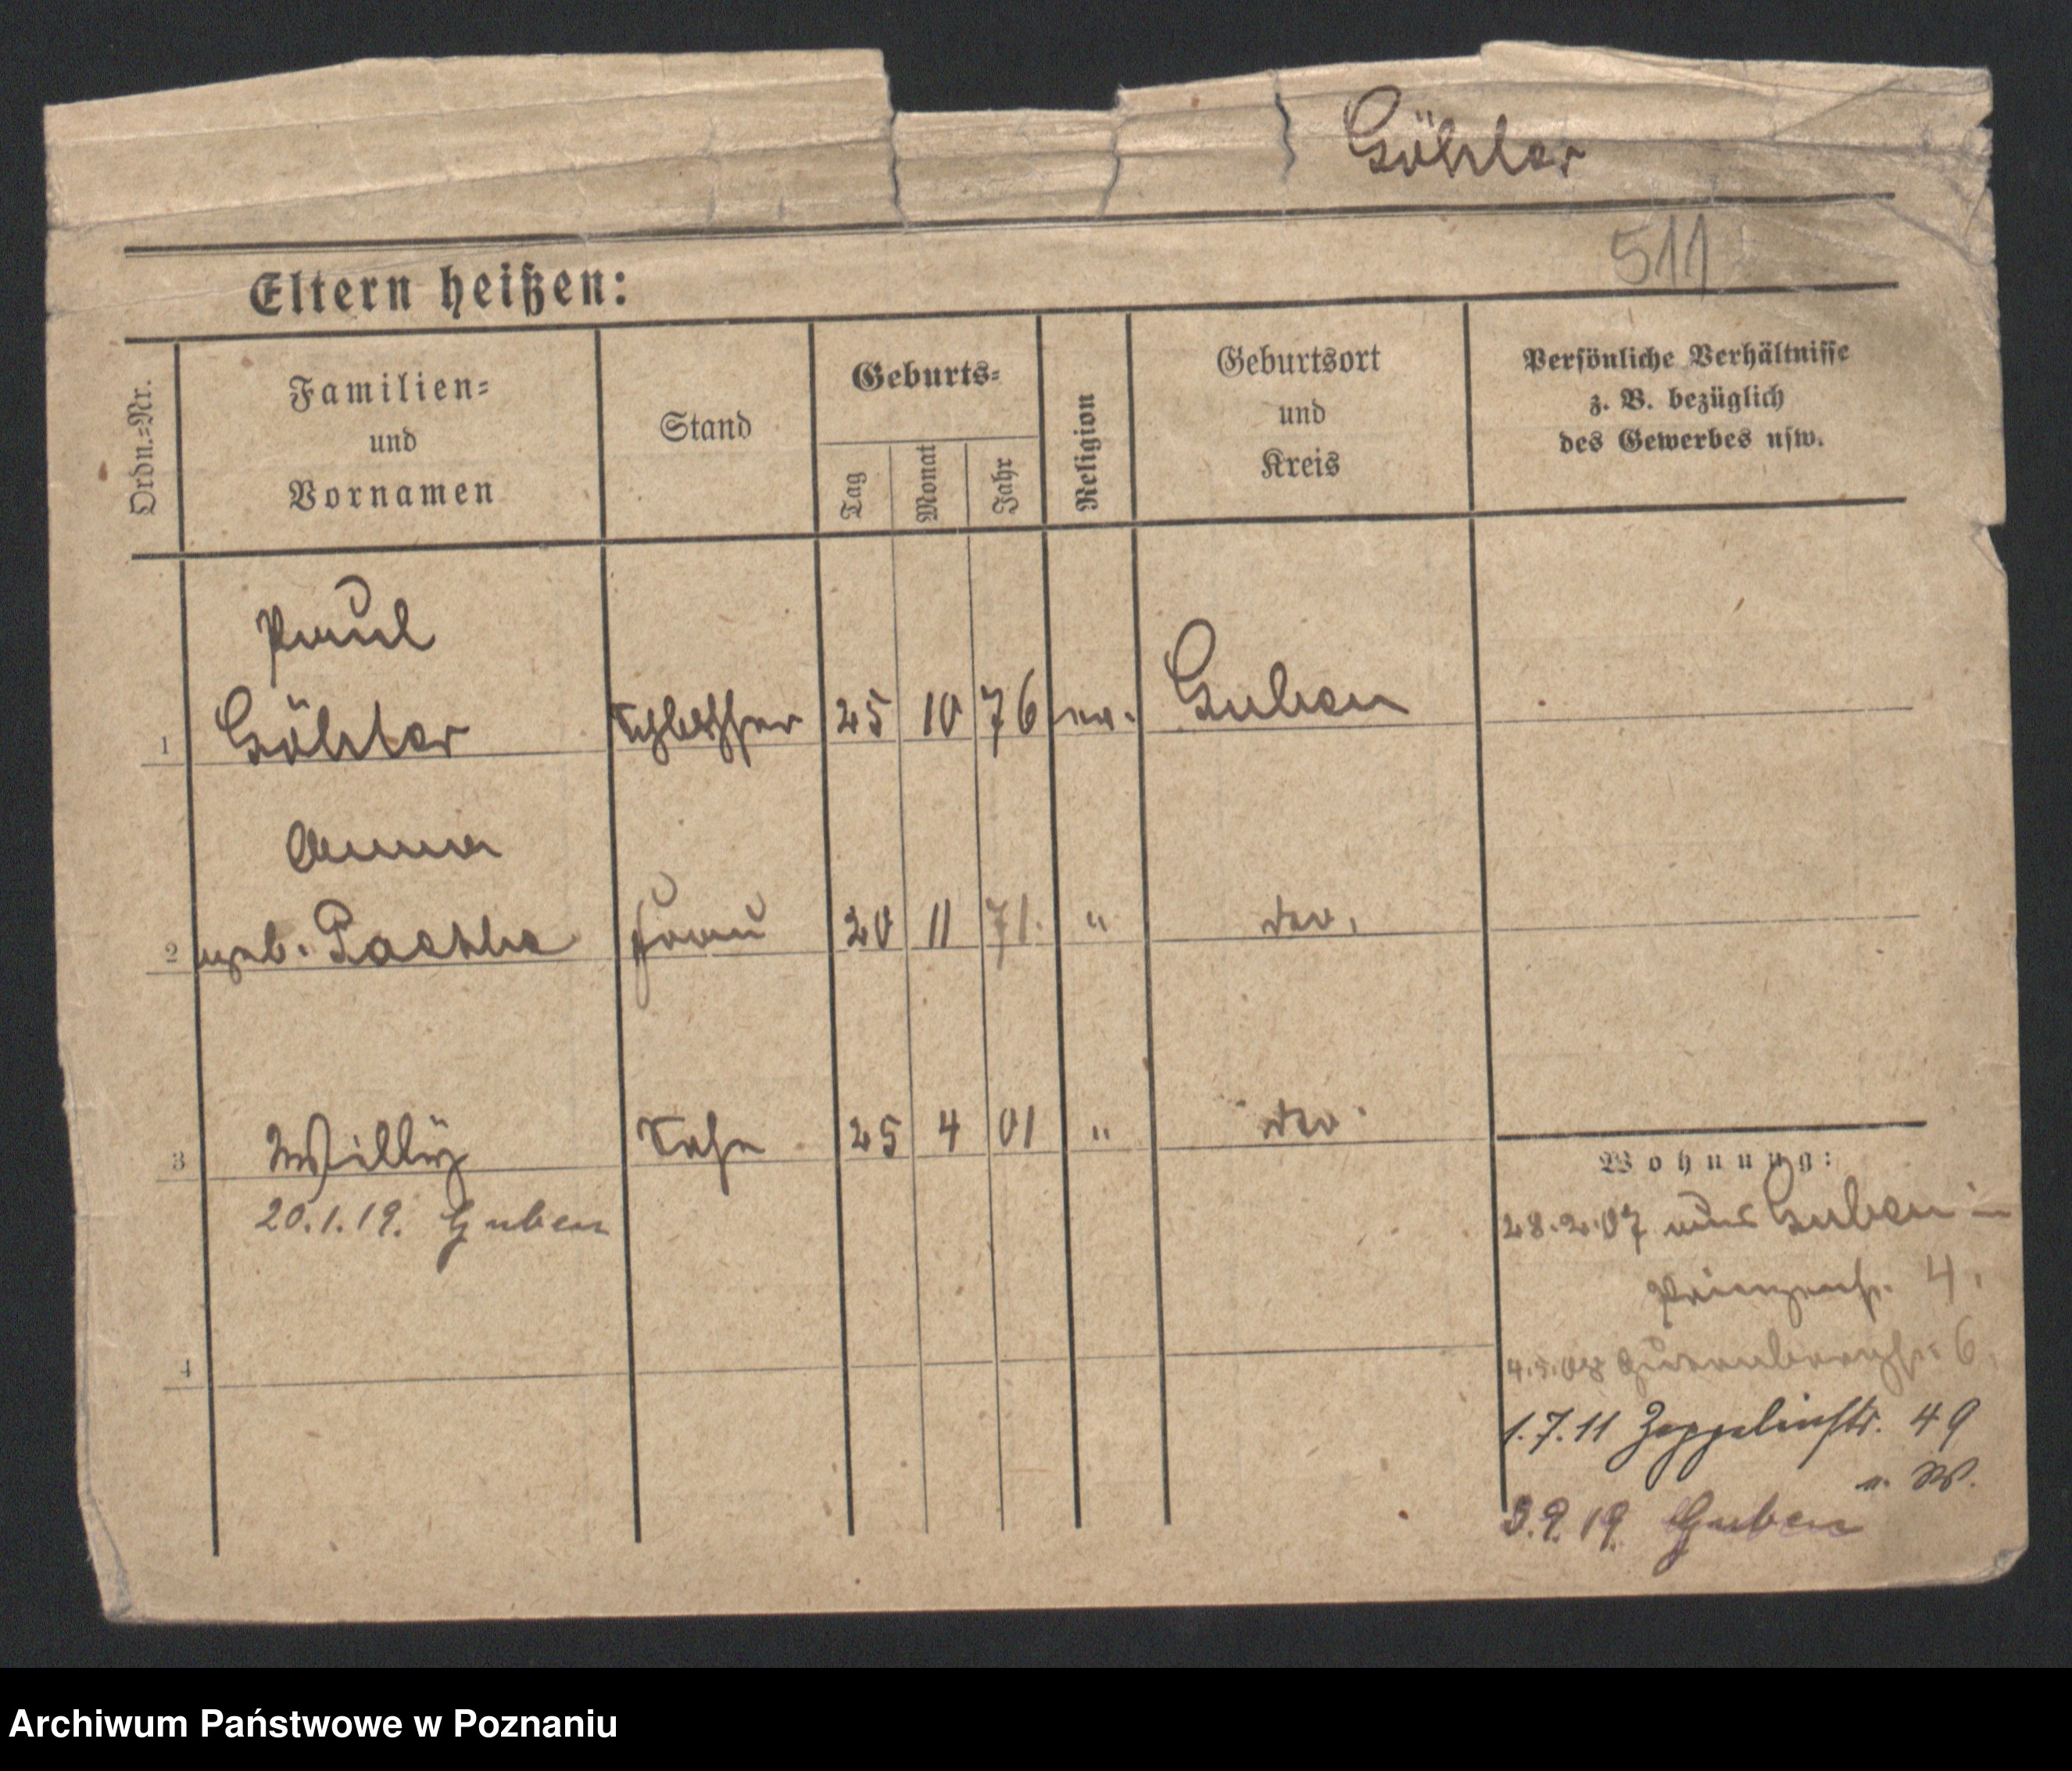 Göhler
511
Eltern heißen:
Ordn.=Nr.
Familien=
und
Vornamen
Stand
Geburts=
Tag
Monat
Jahr
Religion
Geburtsort
und
Kreis
Persönliche Verhältnisse
z. B. bezüglich
des Gewerbes usw.
Paul
1 Göhler Schlosser 25 10 76 ev. Guben
Anna
2 geb. Frau 20 11 71. " dto.
3 Willy Sohn 25 4 01 " dto.
20.1.19. Guben
4
Wohnung:
28.2.07 aus Guben in
Prinzenstr. 4.
4.5.08 Gutenbergstr. 6.
1.7.11 Zeppelinstr. 49
n. W.
3.9.19. Guben
Archiwum Państwowe w Poznaniu